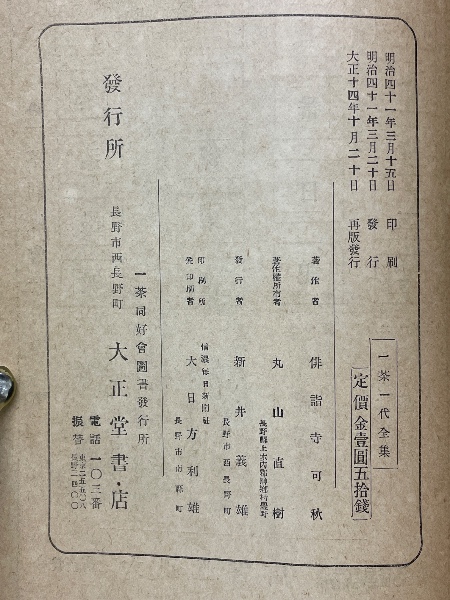 明治四十一年三月十五日 印刷
明治四十一年三月二十日 發行
大正十四年十月二十日 再版發行
一茶一代全集
定價金壹圓五拾錢
著作者 俳諧寺可秋
著作權所有者 丸山直樹
發行者 長野市西長野町 新井義雄
印刷所 信濃每日新聞社
兼印刷者 長野市南縣町 大日方利雄
發行所
一茶同好會圖書發行所
長野市西長野町 大正堂書店
電話一〇三番
振替